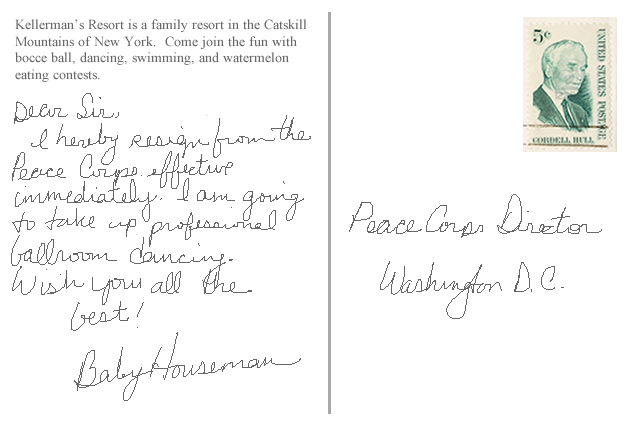 Kellerman's Resort is a family resort in the Catskill
Mountains of New York. Come join the fun with
bocce ball, dancing, swimming, and watermelon
eating contests.
Dear Sir,
I hereby resign from the
Peace Corps effective
immediately. I am going
to take up professional
ballroom dancing.
Wish you all the
best!
Baby Houseman
5¢
UNITED STATES POSTAGE
CORDELL HULL
Peace Corps Director
Washington D.C.